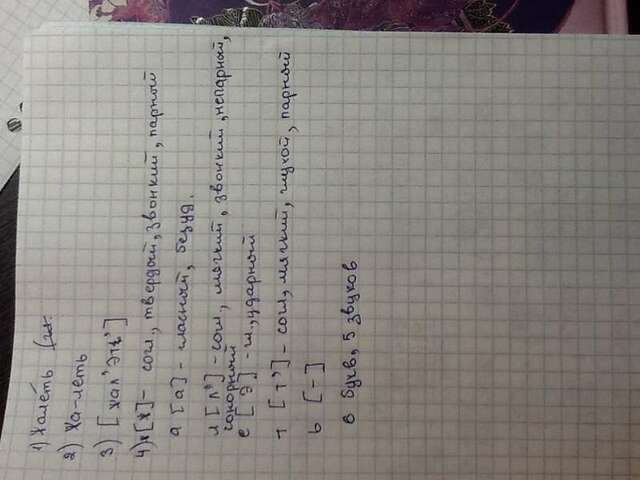 1) Жале́ть
2) Жа-леть
3) [жал'этт']
4) ж [ж] - согл., твердый, звонкий, парный
а [а] - гласный, безуд.
л [л'] - согл., мягкий, звонкий, непарный,
сонорный
е [э] - гл., ударный
т [т'] - согл, мягкий, глухой, парный
ь [-]
6 букв, 5 звуков